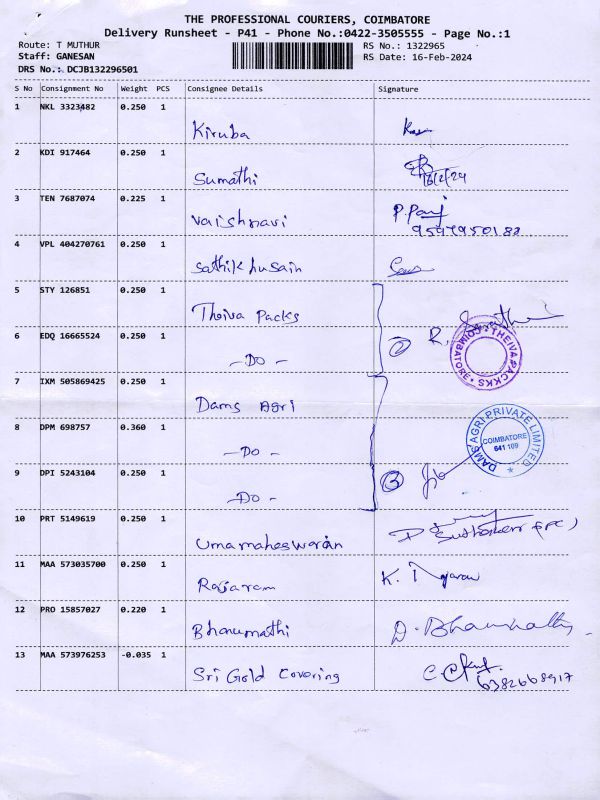 THE PROFESSIONAL COURIERS, COIMBATORE
Delivery Runsheet - P41 - Phone No.:0422-3505555 - Page No.:1
Route: T MUTHUR RS No.: 1322965
Staff: GANESAN RS Date: 16-Feb-2024
DRS No.: DCJB132296501
S No Consignment No Weight PCS Consignee Details Signature
1 NKL 3323482 0.250 1
Kiruba
2 KDI 917464 0.250 1
Sumathi 16/2/24
3 TEN 7687074 0.225 1
Vaishnavi
4 VPL 404270761 0.250 1
Sathik husain
5 STY 126851 0.250 1
Theiva Packs
2 R.
THEIVA PACKKS COIMBATORE
6 EDQ 16665524 0.250 1
-DO-
7 IXM 505869425 0.250 1
Dams Agri
8 DPM 698757 0.360 1
-DO-
DAMS AGRI PRIVATE LIMITED
COIMBATORE
641 109
3
9 DPI 5243104 0.250 1
-DO-
10 PRT 5149619 0.250 1
Umamaheswaran
11 MAA 573035700 0.250 1
Rajaram K.
12 PRO 15857027 0.220 1
Bhanumathi D. Bhanumathy
13 MAA 573976253 -0.035 1
Sri Gold Covering
6382668917